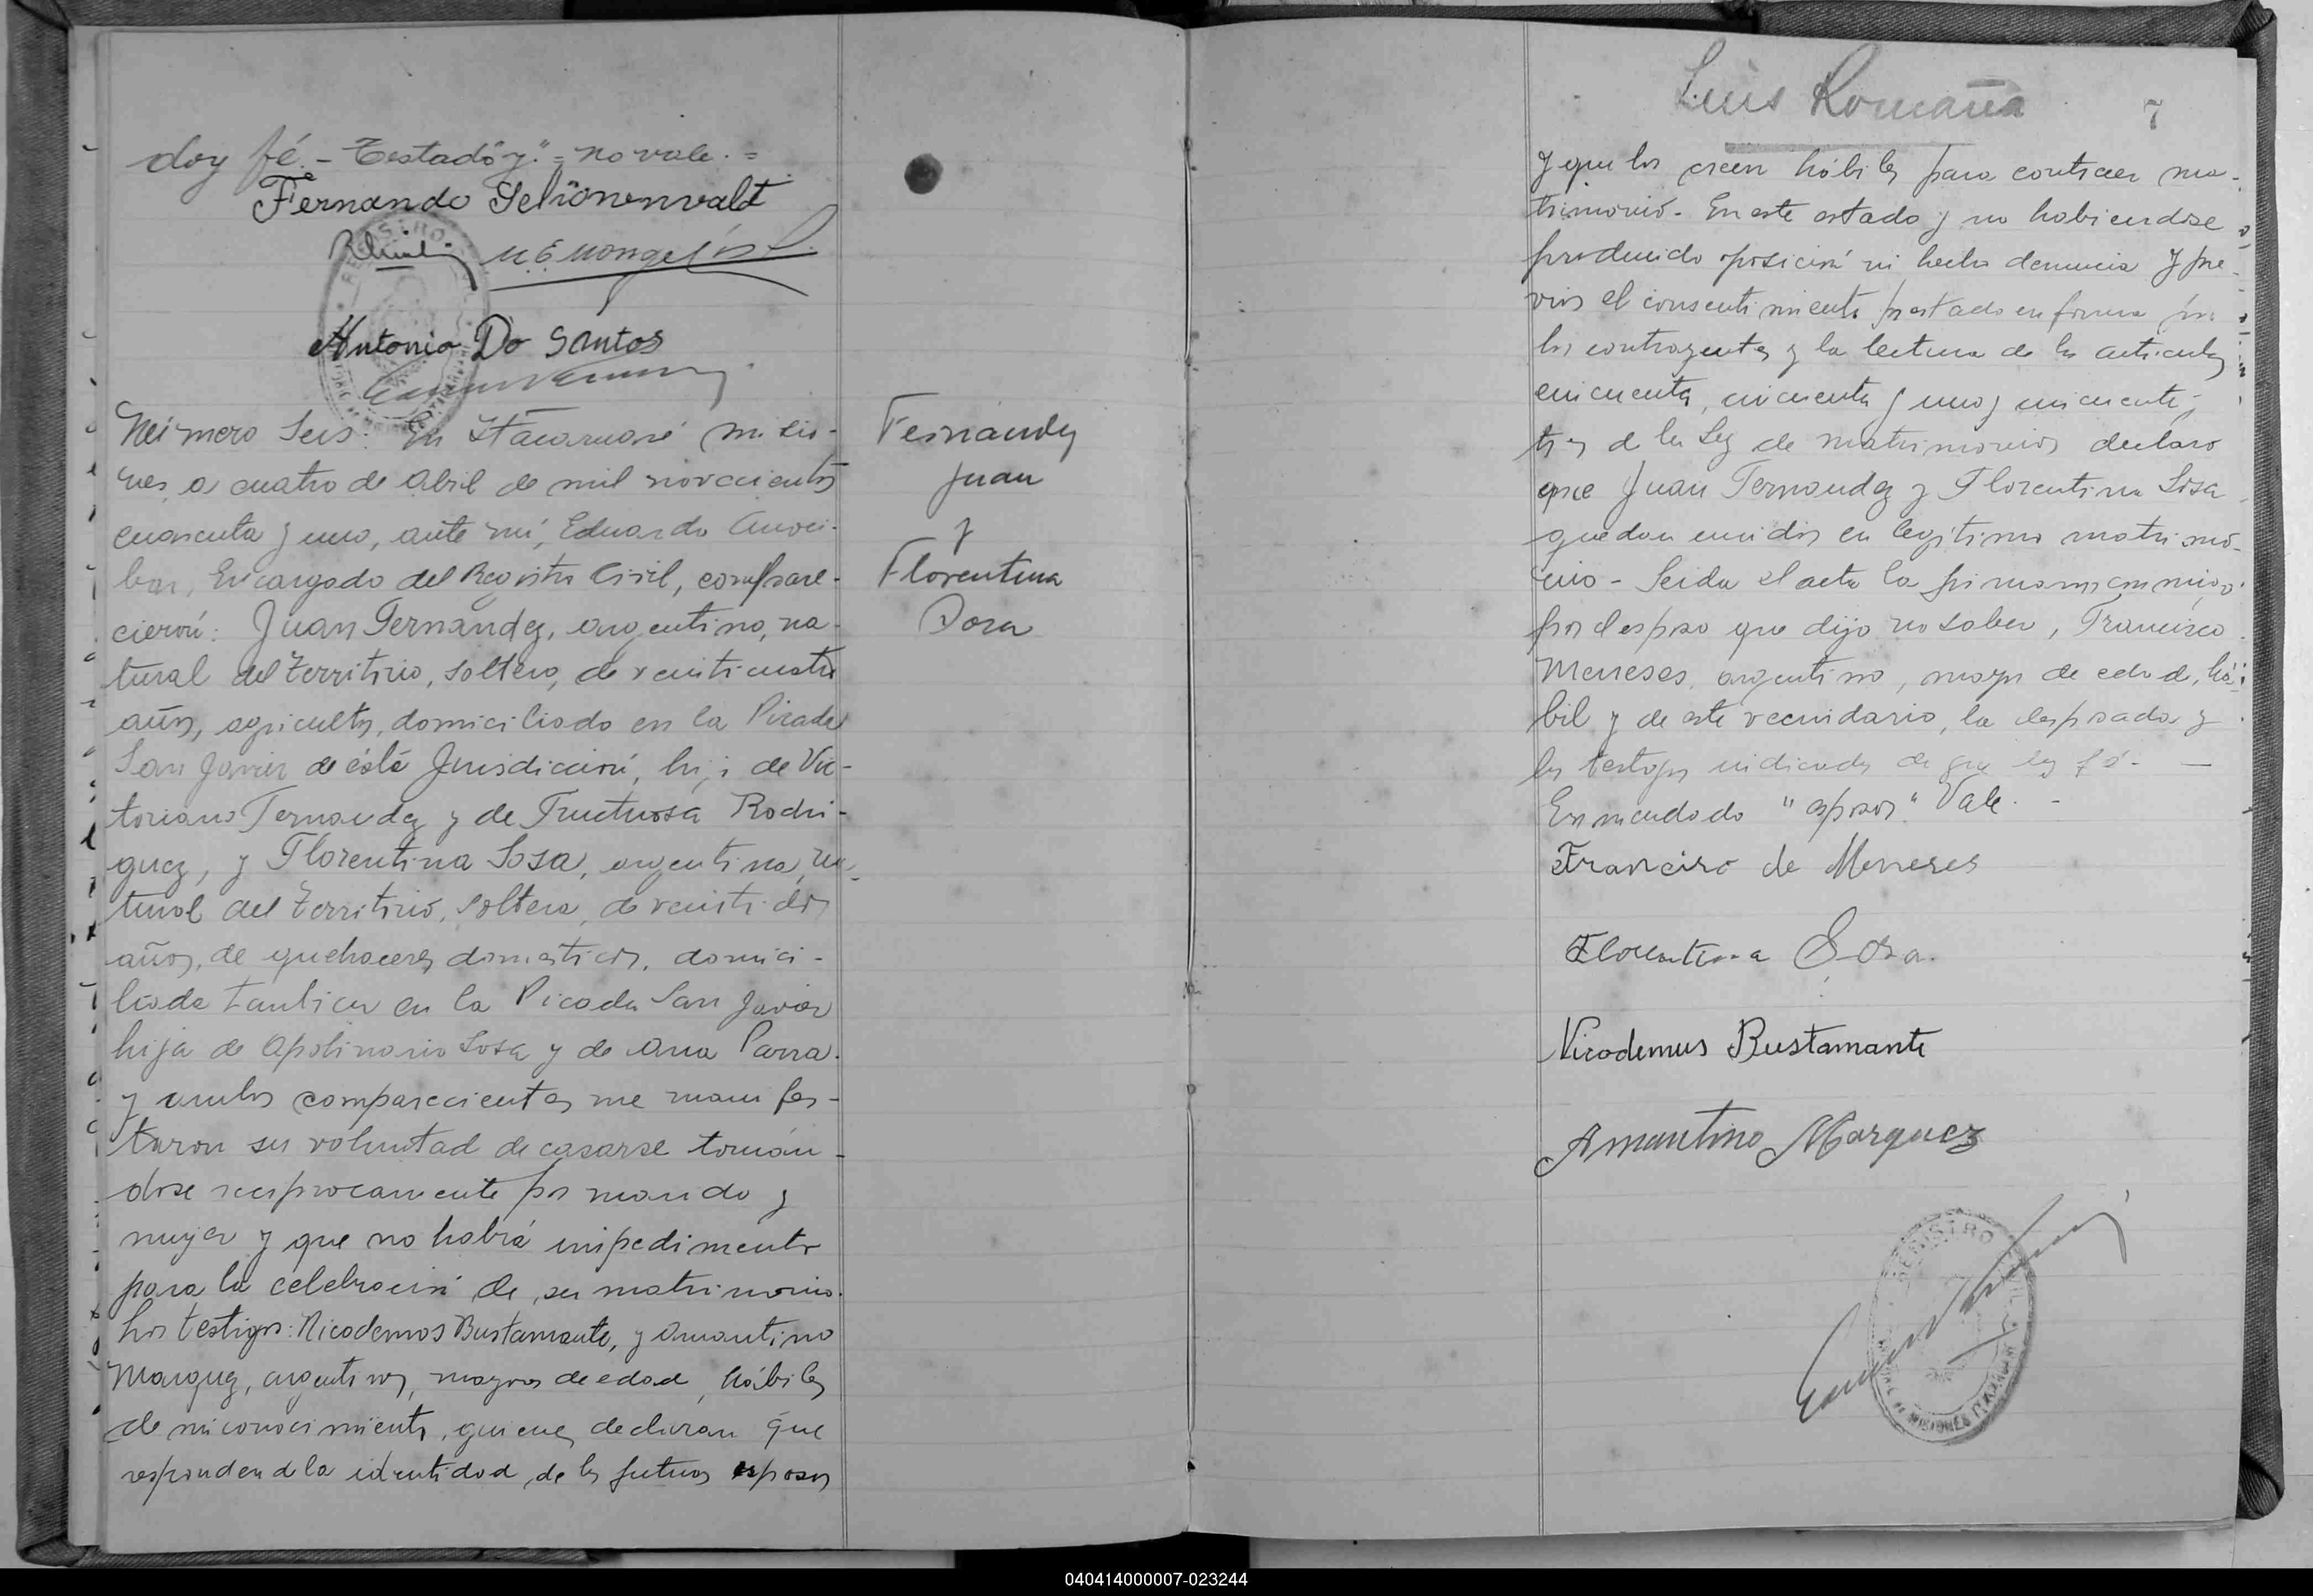 doy fé.- Testado "y" = no vale. =
Fernando Schönenwalt
Antonio Do Santos
Número Seis: En Itacaruaré Misio-
nes, a cuatro de Abril de mil novecientos
cuarenta y uno, ante mí, Eduardo
Encargado del Registro Civil, compare-
cierón: Juan Fernandez, argentino, na-
tural del Territorio, soltero, de veinticuatro
años, agricultor, domiciliado en la Picada
San Javier de ésta Jurisdicción, hijo de Vic-
toriano Fernandez y de Fructuosa Rodri-
guez, y Florentina Sosa, argentina, na-
tural del Territorio, soltera, de veintidos
años, de quehaceres domesticos, domici-
liada tambien en la Picada San Javier
hija de Apolinario Sosa y de Ana Parra.
y ambos comparecientes me manifes-
taron su voluntad de casarse tomán-
dose reciprocamente por marido y
mujer y que no habiá impedimento
para la celebración de su matrimonio.
Los testigos: Nicodemos Bustamante, y Amantino
Marquez, argentinos, mayores de edad, hábiles
de mi conocimiento, quienes declaran que
responden de la identidad de los futuros esposos
Fernandez
Juan
y
Florentina
Sosa
Luis Romaña
7
y que los creen hábiles para contraer ma-
trimonio.- En este estado y no habiendose
producido oposición ni hecho denuncia y pre-
vios el consentimiento prestado en forma por
los contrayentes y la lectura de los articulos
cincuenta, cincuenta y uno y cincuenta y
tres de la Ley de matrimonios declaro
que Juan Fernandez y Florentina Sosa
quedan unidos en legitimo matrimo-
nio - Leida el acta la firman conmigo
por el esposo que dijo no saber, Francisco
Meneses, argentino, mayor de edad, há-
bil y de este vecindario, la desposada y
los testigos indicados de que doy fé. -
Enmendado "esposos" Vale. -
Francisco de Meneses
Florentina Sosa.
Nicodemus Bustamante
Amantino Marquez
REGISTRO
MISIONES
040414000007-023244